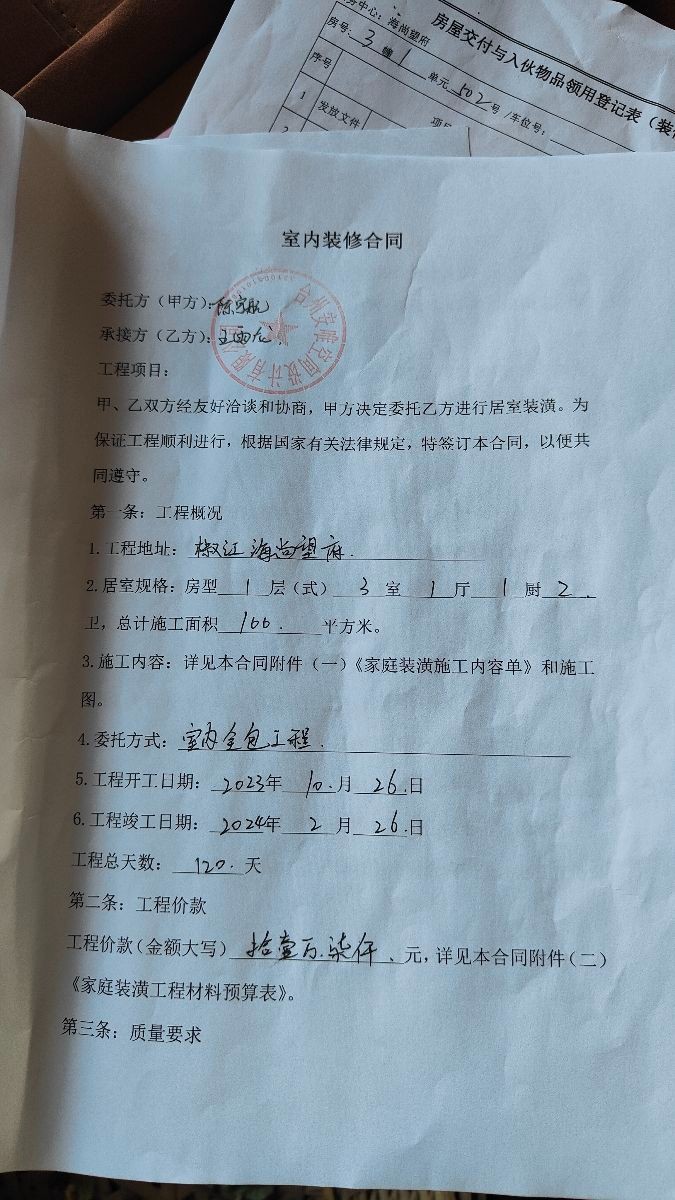 务中心：海尚望府
房屋交付与入伙物品领用登记表（装
房号：3 幢 1 单元 502 号 /车位号：
序号
项
1 发放文件
室内装修合同
委托方（甲方）：
承接方（乙方）：
工程项目：
甲、乙双方经友好洽谈和协商，甲方决定委托乙方进行居室装潢。为
保证工程顺利进行，根据国家有关法律规定，特签订本合同，以便共
同遵守。
第一条：工程概况
1.工程地址：椒江海尚望府.
2.居室规格：房型 1 层（式） 3 室 1 厅 1 厨 2 、
卫，总计施工面积 100. 平方米。
3.施工内容：详见本合同附件（一）《家庭装潢施工内容单》和施工
图。
4.委托方式：室内全包工程.
5.工程开工日期：2023年 10.月 26.日
6.工程竣工日期：2024年 2 月 26.日
工程总天数：120.天
第二条：工程价款
工程价款（金额大写）拾壹万柒仟、元，详见本合同附件（二）
《家庭装潢工程材料预算表》。
第三条：质量要求